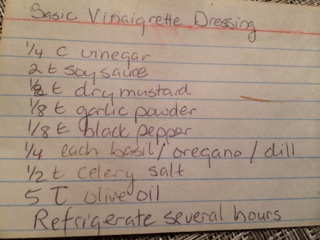 Basic Vinaigrette Dressing
1/4 c vinegar
2 t soy sauce
1/2 t dry mustard
1/8 t garlic powder
1/8 t black pepper
1/4 each basil / oregano / dill
1/2 t celery salt
5 T olive oil
Refrigerate several hours